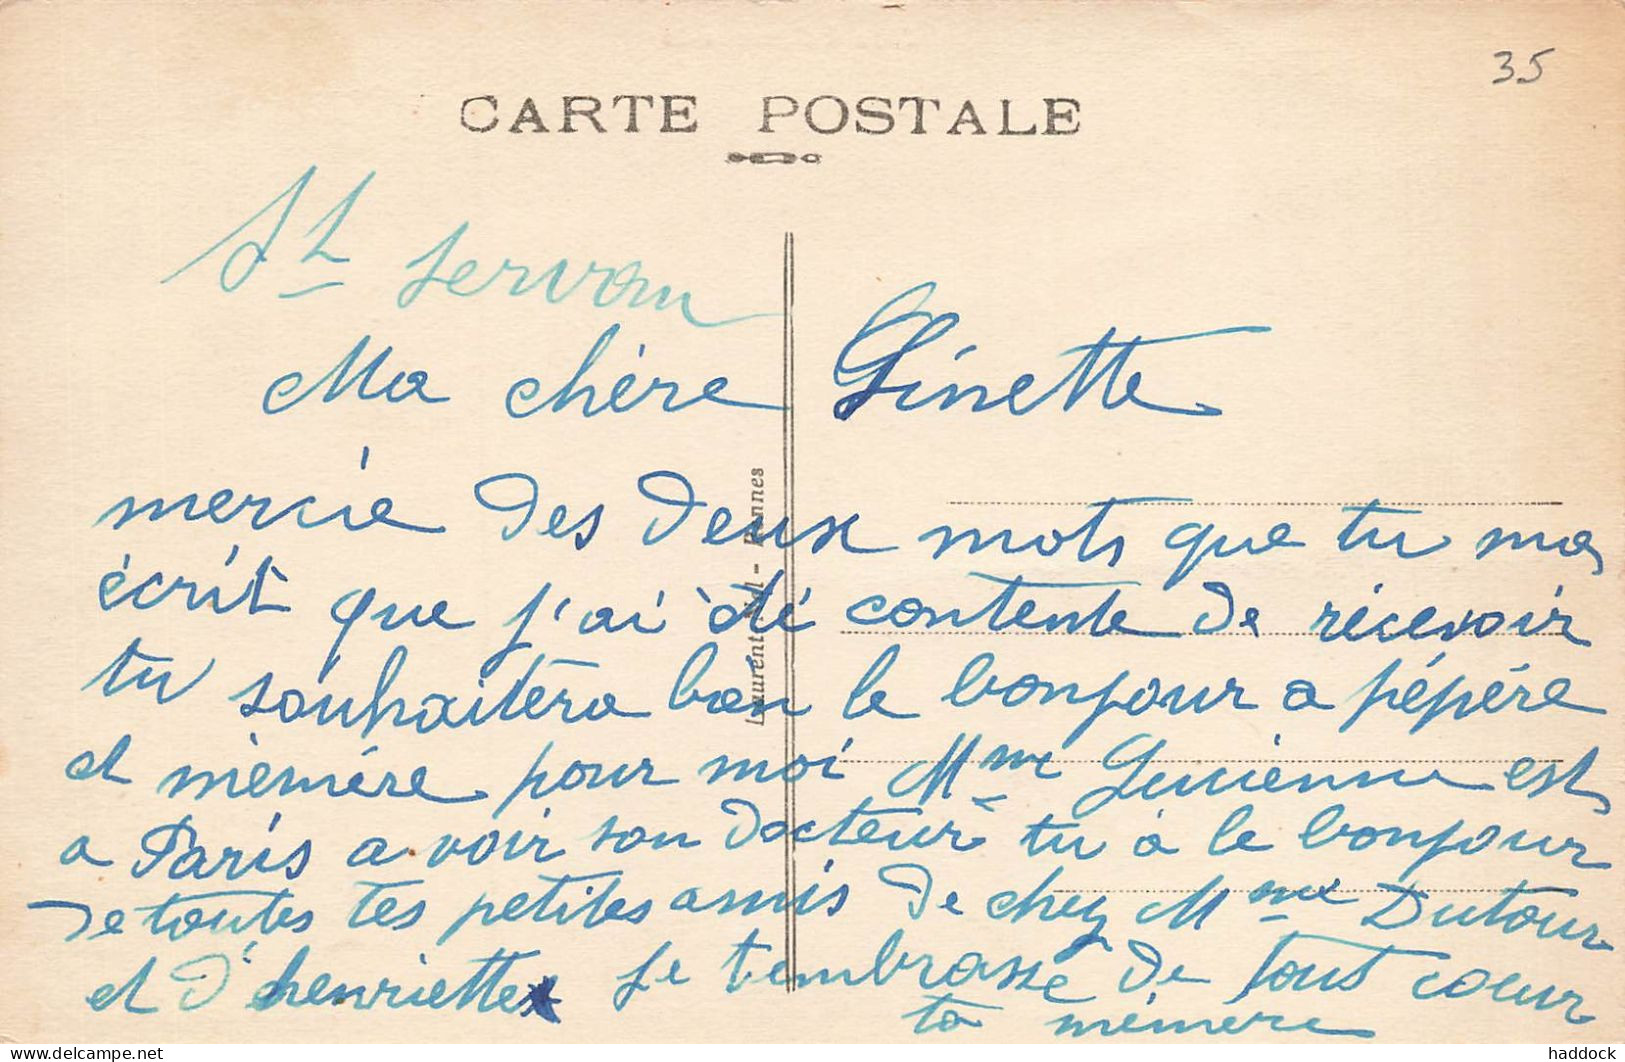 35
CARTE POSTALE
St Servan
Ma chère Ginette
mercie des deux mots que tu ma
écrit que j'ai été contente de récevoir
tu souhaitera bon le bonjour a pépére
et mémére pour moi Mme Lucienne est
a Paris a voir son docteur tu à le bonjour
de toutes tes petites amis de chez Mme Dutour
et d'henriette Je t'embrasse de tout coeur
ta mémére
Laurent-Nel - Rennes
haddock